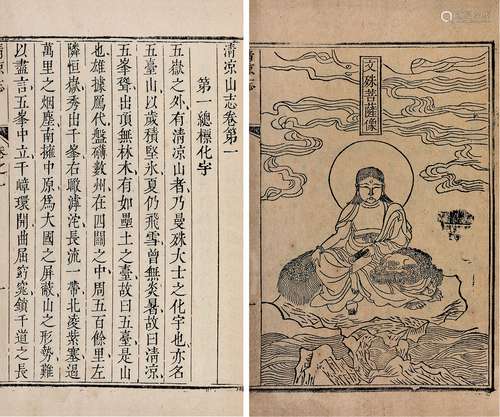 清凉山志卷第一
第一總標化宇
五嶽之外有清凉山者乃曼殊大士之化宇也亦名
五臺山以歲積堅氷夏仍飛雪曾無炎暑故曰清凉
五峯聳出頂無林木有如壘土之臺故曰五臺是山
也雄據鴈代盤礴數州在四關之中周五百餘里左
隣恒嶽秀出千峯右瞰滹沱長流一帶北凌紫塞遏
萬里之烟塵南擁中原爲大國之屏蔽山之形勢難
以盡言五峯中立千嶂環開曲屈窈窕鎖千道之長
文殊菩薩像